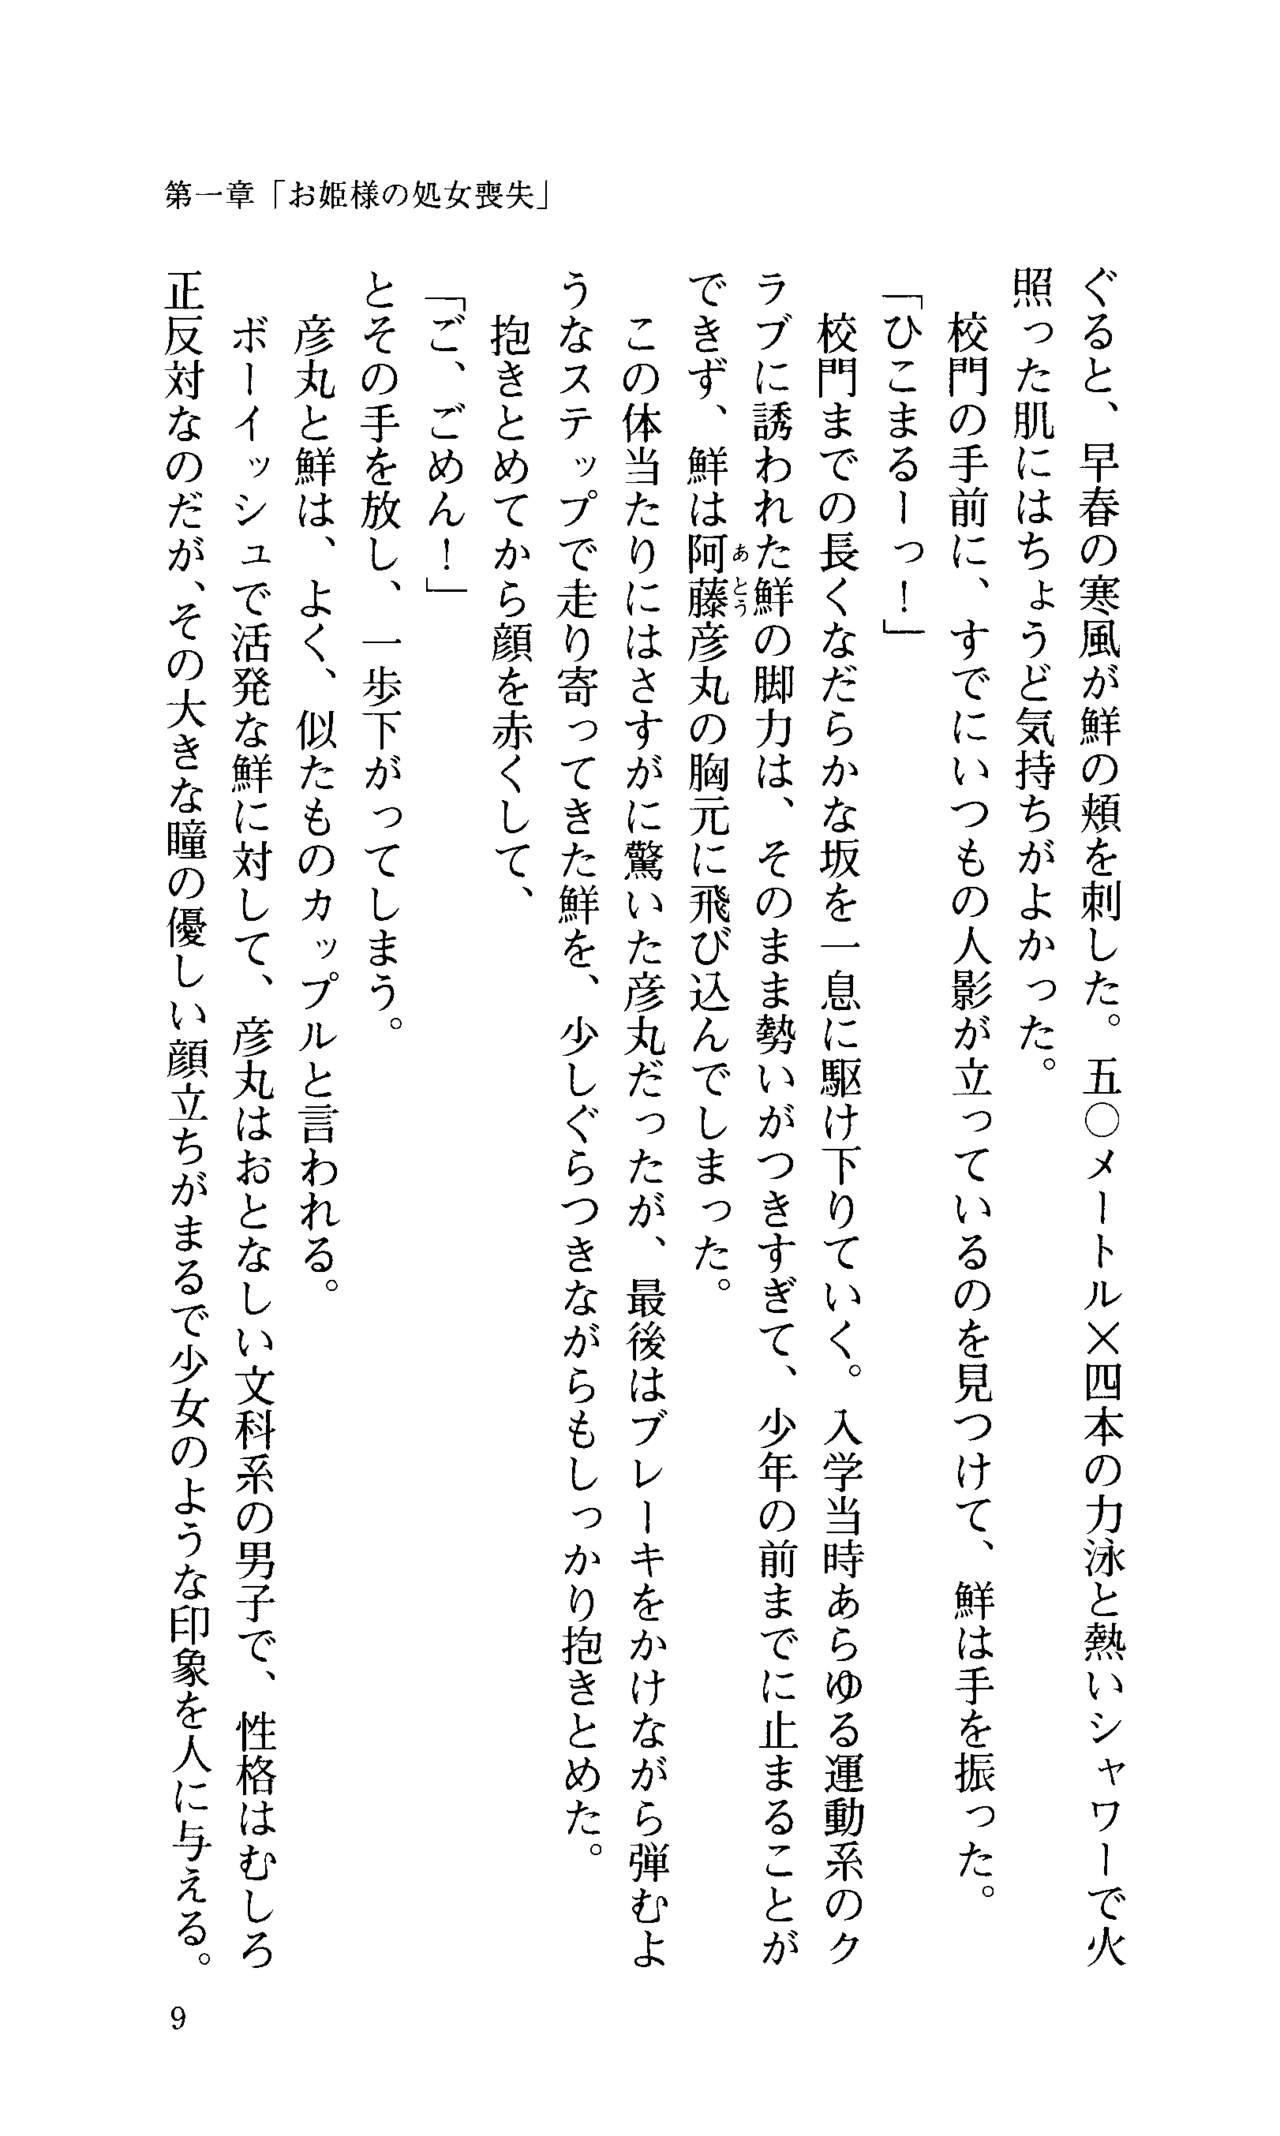 第一章「お姫様の処女喪失」
ぐると、早春の寒風が鮮の頬を刺した。五〇メートル×四本の力泳と熱いシャワーで火
照った肌にはちょうど気持ちがよかった。
校門の手前に、すでにいつもの人影が立っているのを見つけて、鮮は手を振った。
「ひこまるーっ！」
校門までの長くなだらかな坂を一息に駆け下りていく。入学当時あらゆる運動系のク
ラブに誘われた鮮の脚力は、そのまま勢いがつきすぎて、少年の前までに止まることが
できず、鮮は阿藤彦丸の胸元に飛び込んでしまった。
あとう
この体当たりにはさすがに驚いた彦丸だったが、最後はブレーキをかけながら弾むよ
うなステップで走り寄ってきた鮮を、少しぐらつきながらもしっかり抱きとめた。
抱きとめてから顔を赤くして、
「ご、ごめん！」
とその手を放し、一歩下がってしまう。
彦丸と鮮は、よく、似たものカップルと言われる。
ボーイッシュで活発な鮮に対して、彦丸はおとなしい文科系の男子で、性格はむしろ
正反対なのだが、その大きな瞳の優しい顔立ちがまるで少女のような印象を人に与える。
9